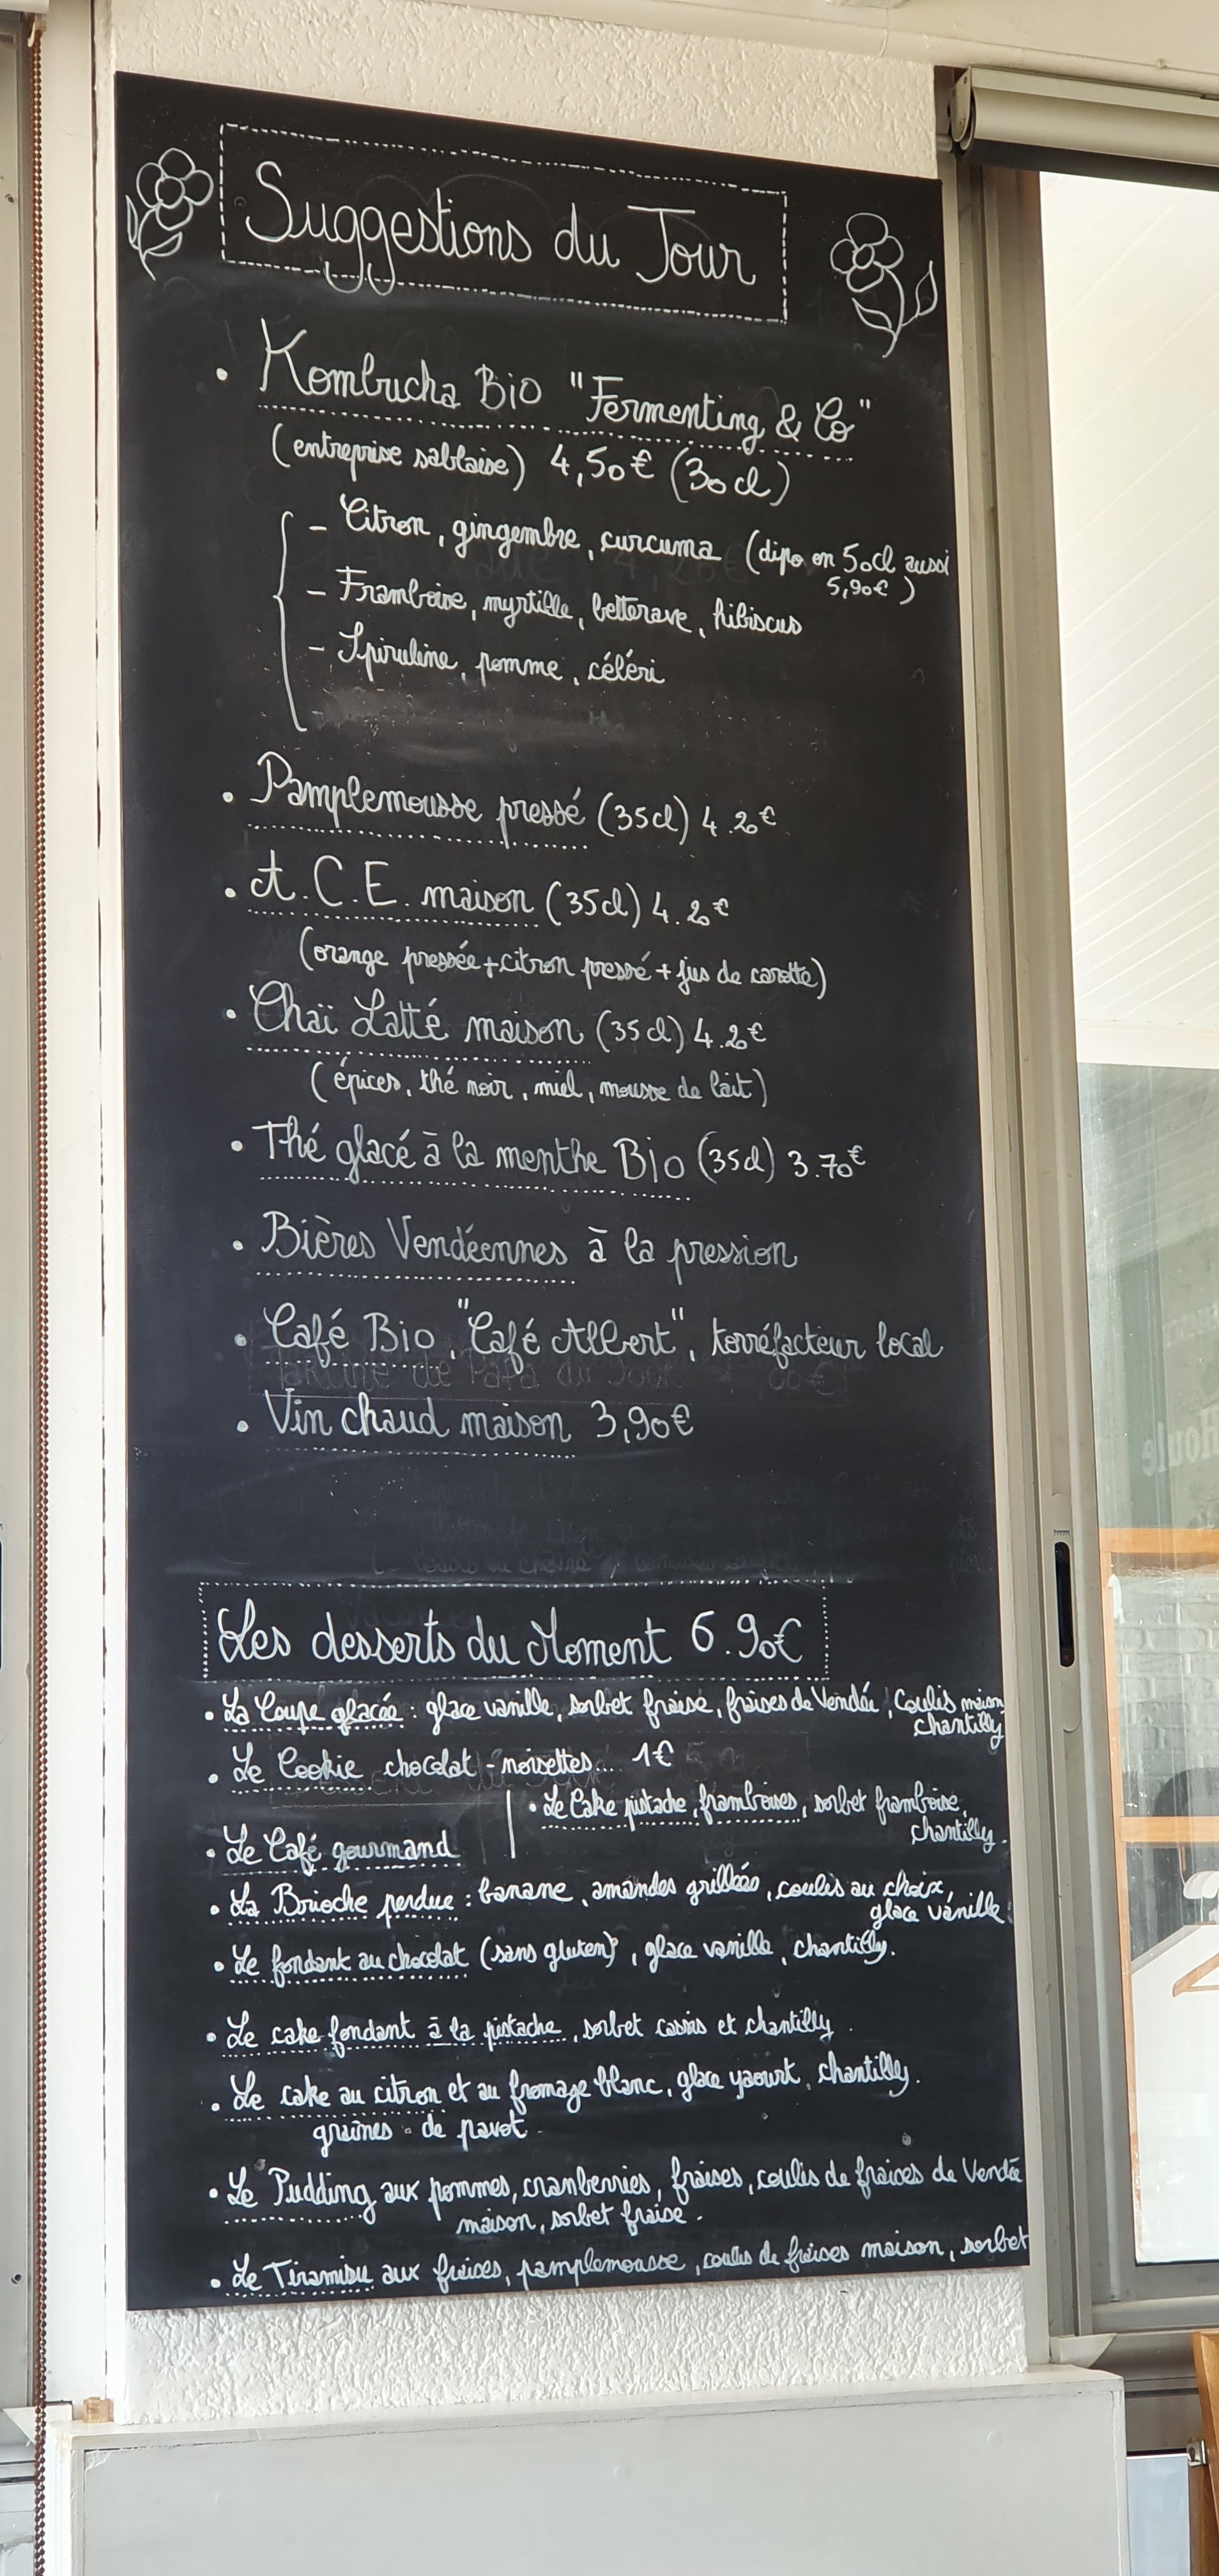 Suggestions du Jour
• Kombucha Bio "Fermenting & Co"
(entreprise sablaise) 4,50€ (30cl)
- Citron, gingembre, curcuma (dipo en 50cl aussi
5,90€)
- Framboise, myrtille, betterave, hibiscus
- Spiruline, pomme, céléri
• Pamplemousse pressé (35cl) 4.20€
• A.C.E. maison (35cl) 4.20€
(orange pressée + citron pressé + jus de carotte)
• Chaï Latté maison (35cl) 4.20€
(épices, thé noir, miel, mousse de lait)
• Thé glacé à la menthe Bio (35cl) 3.70€
• Bières Vendéennes à la pression
• Café Bio, "Café Albert", torréfacteur local
• Vin chaud maison 3,90€
Les desserts du Moment 6.90€
• La Coupe glacée : glace vanille, sorbet fraise, fraises de Vendée, Coulis maison,
chantilly
• Le Cookie chocolat - noisettes... 1€
• Le Cake pistache, framboises, sorbet framboise,
chantilly.
• Le Café gourmand
• La Brioche perdue : banane, amandes grillées, coulis au choix,
glace vanille.
• Le fondant au chocolat (sans gluten), glace vanille, chantilly.
• Le cake fondant à la pistache, sorbet cassis et chantilly.
• Le cake au citron et au fromage blanc, glace yaourt, chantilly.
graines de pavot.
• Le Pudding aux pommes, cranberries, fraises, coulis de fraises de Vendée
maison, sorbet fraise.
• Le Tiramisu aux fraises, pamplemousse, coulis de fraises maison, sorbet